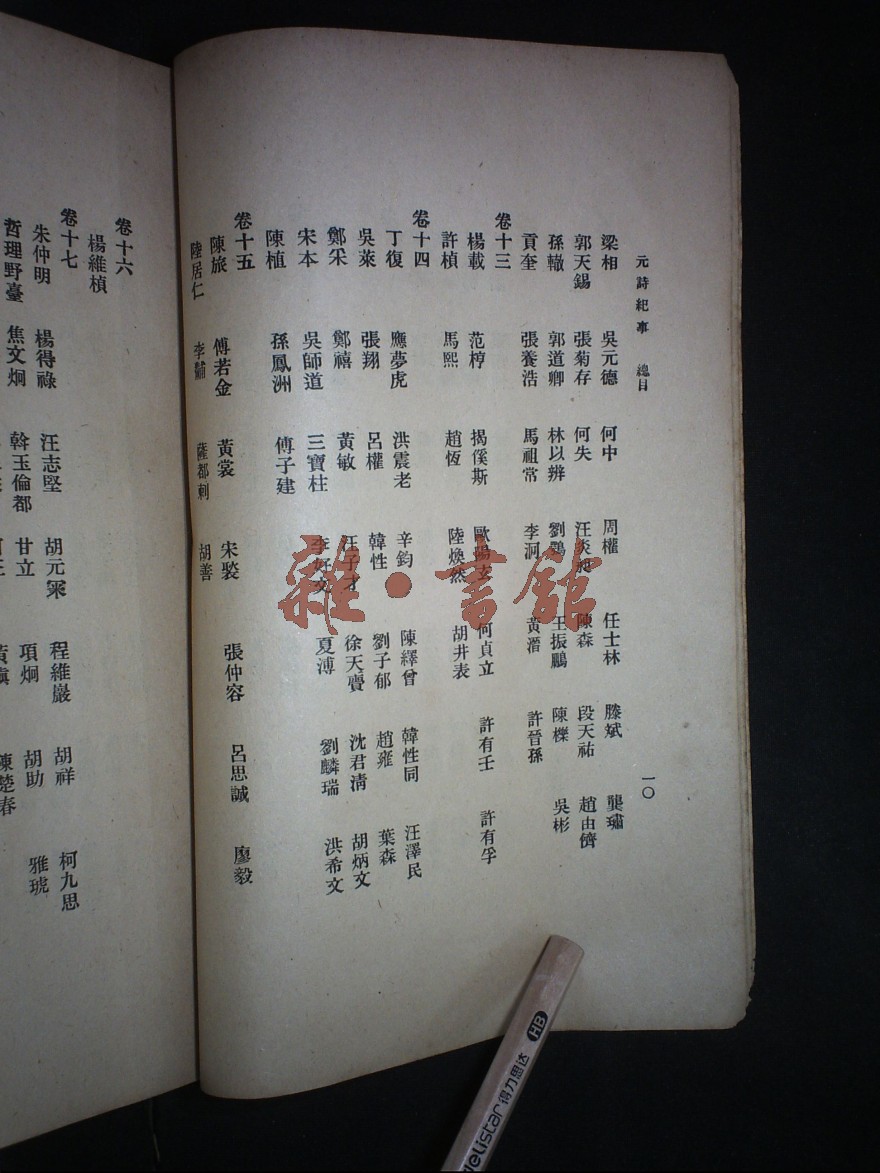 元詩紀事 總目 一〇
梁相 吳元德 何中 周權 任士林 滕斌 龔璛
郭天錫 張菊存 何失 汪炎昶 陳森 段天祐 趙由儕
孫轍 郭道卿 林以辨 劉鶚 王振鵬 陳櫟 吳彬
貢奎 張養浩 馬祖常 李泂 黃溍 許晉孫
卷十三
楊載 范梈 揭傒斯 歐陽玄 何貞立 許有壬 許有孚
許楨 馬熙 趙恆 陸煥然 胡井表
卷十四
丁復 應夢虎 洪震老 辛鈞 陳繹曾 韓性同 汪澤民
吳萊 張翔 呂權 韓性 劉子郁 趙雍 葉森
鄭采 鄭禧 黃敏 汪子才 徐天賚 沈君清 胡炳文
宋本 吳師道 三寶柱 李好文 夏溥 劉麟瑞 洪希文
陳植 孫鳳洲 傅子建
卷十五
陳旅 傅若金 黃裳 宋褧 張仲容 呂思誠 廖毅
陸居仁 李黼 薩都剌 胡善
卷十六
楊維楨
卷十七
朱仲明 楊得祿 汪志堅 胡元寀 程維巖 胡祥 柯九思
哲理野臺 焦文炯 斡玉倫都 甘立 項炯 胡助 雅琥
陳楚春
雜·書館
delistar得力思达 HB